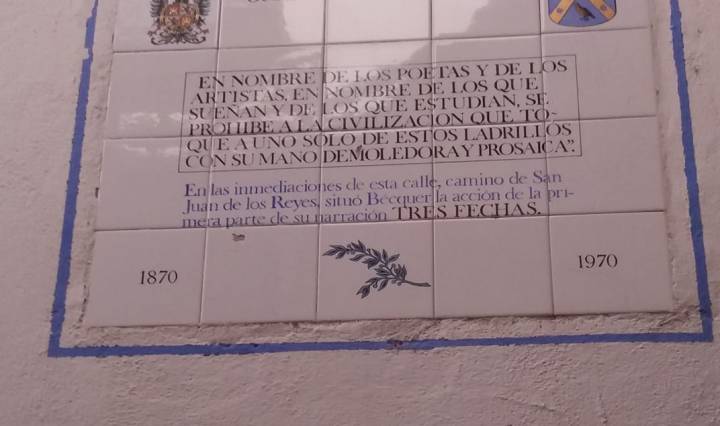 EN NOMBRE DE LOS POETAS Y DE LOS
ARTISTAS, EN NOMBRE DE LOS QUE
SUEÑAN Y DE LOS QUE ESTUDIAN, SE
PROHIBE A LA CIVILIZACION QUE TO-
QUE A UNO SOLO DE ESTOS LADRILLOS
CON SU MANO DEMOLEDORA Y PROSAICA".
En las inmediaciones de esta calle, camino de San
Juan de los Reyes, situó Bécquer la acción de la pri-
mera parte de su narración TRES FECHAS.
1870
1970